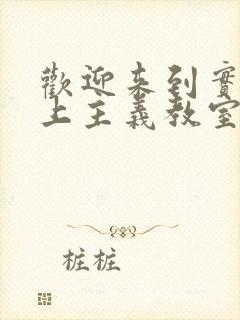 歡迎來到實
上主義教室
桩桩